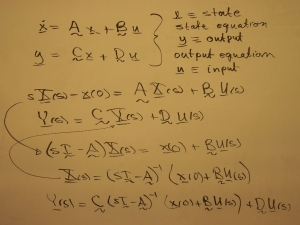 ẋ = A x + B u
y = C x + D u
x ≡ state
state equation
y ≡ output
output equation
u ≡ input
s X(s) - x(0) = A X(s) + B U(s)
Y(s) = C X(s) + D U(s)
(sI - A) X(s) = x(0) + B U(s)
X(s) = (sI - A)⁻¹ (x(0) + B U(s))
Y(s) = C (sI - A)⁻¹ (x(0) + B U(s)) + D U(s)